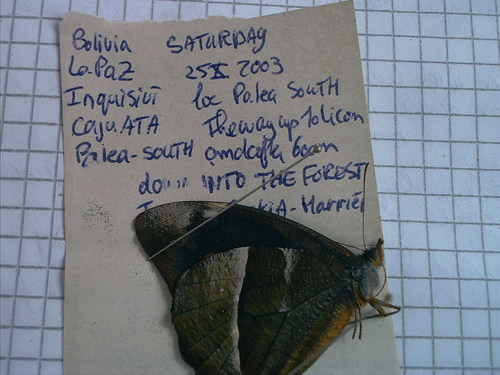 Bolivia SATURDAY
La-PaZ 25 X 2003
Inquisivi loc Palea South
CajuATA The way up to licon
Palea-SOUTH and after been
down INTO THE FOREST
KIA-Harriet